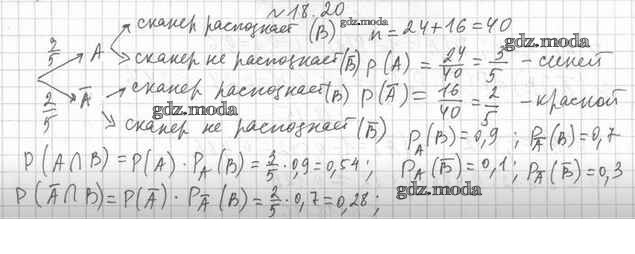 № 18.20
сканер распознает (B) gdz.moda n = 24+16 = 40
3/5 A сканер не распознает (B̅) P(A) = 24/40 = 3/5 – синей gdz.moda
2/5 A̅ сканер распознает (B) P(A̅) = 16/40 = 2/5 – красной gdz.moda gdz.moda
сканер не распознает (B̅) P_A(B) = 0,9 ; P_A̅(B) = 0,7
P(A∩B) = P(A) · P_A(B) = 3/5 · 0,9 = 0,54 ; P_A(B̅) = 0,1 ; P_A̅(B̅) = 0,3
P(A̅∩B) = P(A̅) · P_A̅(B) = 2/5 · 0,7 = 0,28 ; gdz.moda